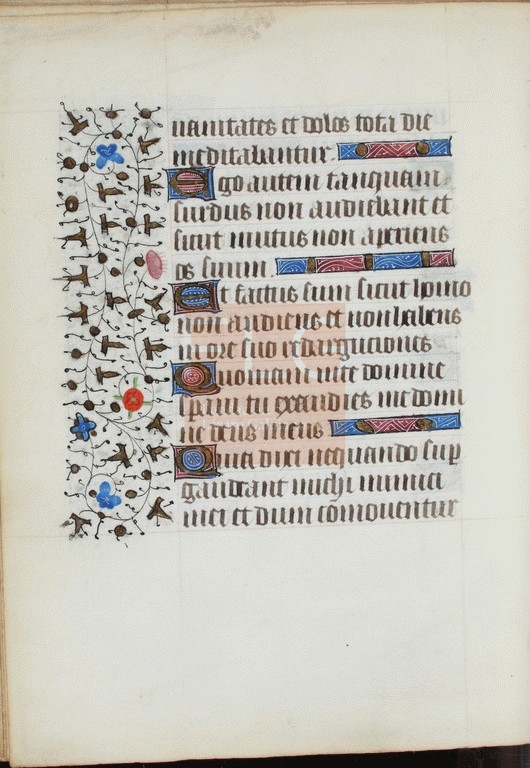 uanitates et dolos tota die
meditabantur.
Ego autem tanquam
surdus non audiebant et
sicut mutus non aperiens
os suum.
Et factus sum sicut homo
non audiens et non habens
in ore suo redargutiones
Quoniam in te domine
speraui tu exaudies me domi
ne deus meus
Quia dixi nequando sup
gaudeant michi inimici
mei et dum comouentur